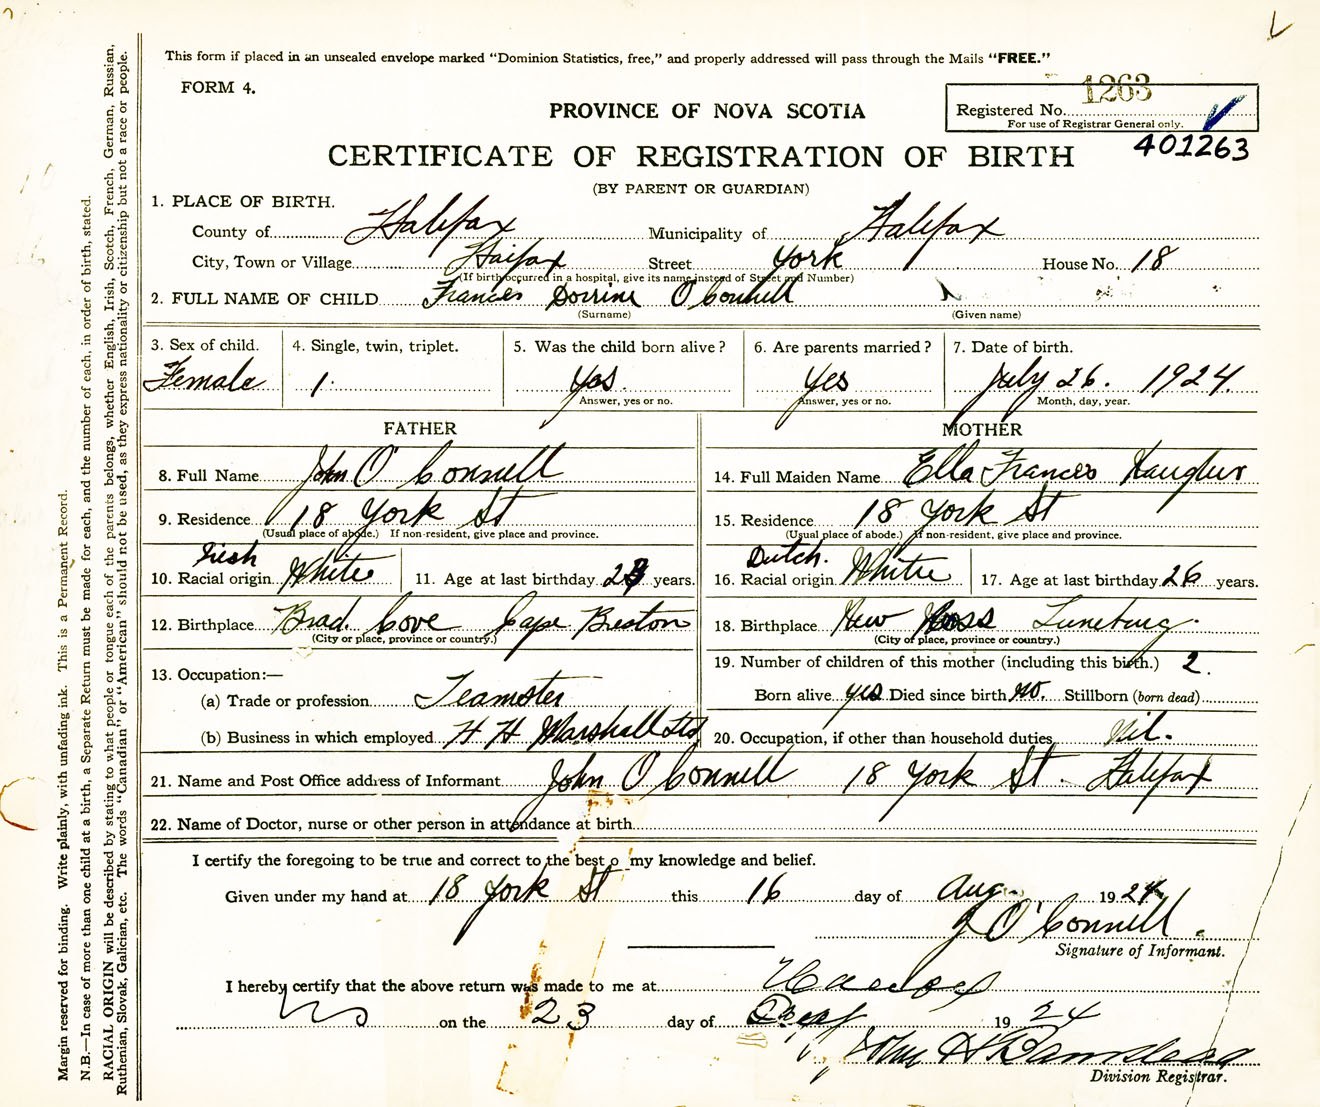 This form if placed in an unsealed envelope marked "Dominion Statistics, free," and properly addressed will pass through the Mails "FREE."
FORM 4.
1263
PROVINCE OF NOVA SCOTIA
Registered No.
For use of Registrar General only.
401263
CERTIFICATE OF REGISTRATION OF BIRTH
(BY PARENT OR GUARDIAN)
1. PLACE OF BIRTH.
County of Halifax Municipality of Halifax
City, Town or Village Haifax Street York House No. 18
(If birth occurred in a hospital, give its name instead of Street and Number)
2. FULL NAME OF CHILD Frances Dorrine O'Connell
(Surname) (Given name)
3. Sex of child. 4. Single, twin, triplet. 5. Was the child born alive? 6. Are parents married? 7. Date of birth.
Female 1. Yes. Yes July 26. 1924.
Answer, yes or no. Answer, yes or no. Month, day, year.
FATHER MOTHER
8. Full Name John O'Connell 14. Full Maiden Name Ella Frances
9. Residence 18 York St 15. Residence 18 York St
(Usual place of abode.) If non-resident, give place and province. (Usual place of abode.) If non-resident, give place and province.
Irish Dutch.
10. Racial origin White 11. Age at last birthday years. 16. Racial origin White 17. Age at last birthday 26 years.
12. Birthplace Brad Cove Cape Breton 18. Birthplace New Ross Luneburg.
(City or place, province or country.) (City or place, province or country.)
13. Occupation:— 19. Number of children of this mother (including this birth.) 2.
(a) Trade or profession Teamster Born alive yes Died since birth no. Stillborn (born dead)
(b) Business in which employed H H Marshall Ltd 20. Occupation, if other than household duties Nil.
21. Name and Post Office address of Informant John O'Connell 18 York St. Halifax
22. Name of Doctor, nurse or other person in attendance at birth
I certify the foregoing to be true and correct to the best o my knowledge and belief.
Given under my hand at 18 York St this 16 day of Aug. 1924
J O'Connell.
Signature of Informant.
I hereby certify that the above return was made to me at Halifax
NS on the 23 day of 1924
Division Registrar.
Margin reserved for binding. Write plainly, with unfading ink. This is a Permanent Record.
N.B.—In case of more than one child at a birth, a Separate Return must be made for each, and the number of each, in order of birth, stated.
RACIAL ORIGIN will be described by stating to what people or tongue each of the parents belongs, whether English, Irish, Scotch, French, German, Russian,
Ruthenian, Slovak, Galician, etc. The words "Canadian" or "American" should not be used, as they express nationality or citizenship but not a race or people.